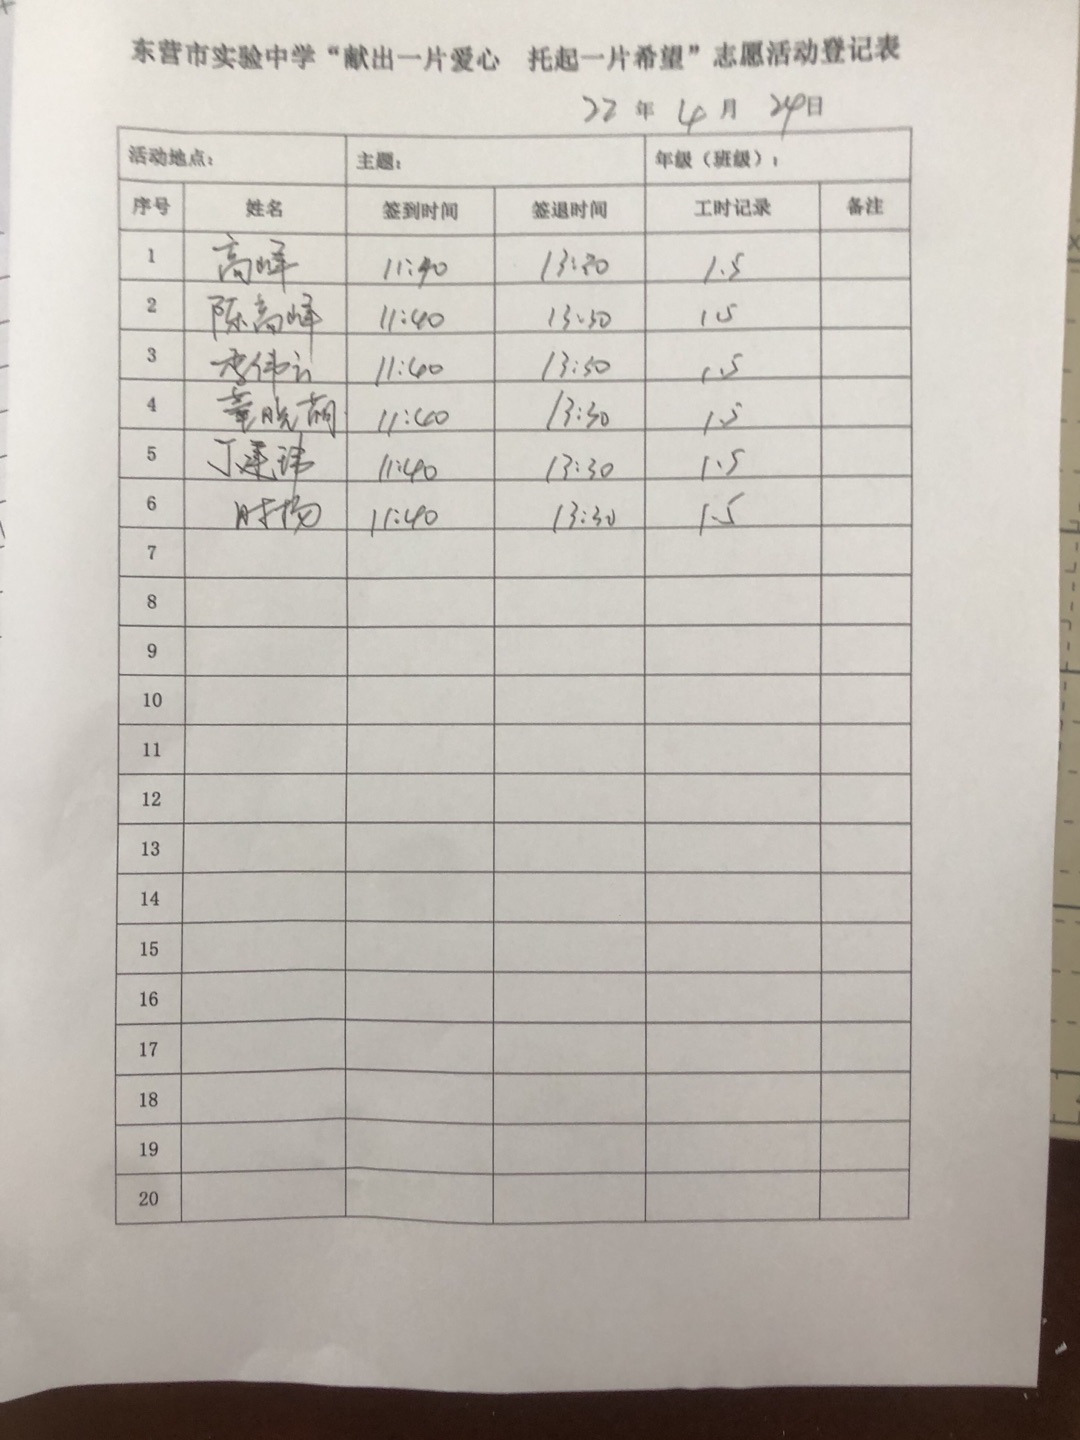 东营市实验中学“献出一片爱心 托起一片希望”志愿活动登记表
22 年 4 月 24 日
活动地点: 主题: 年级(班级):
序号 姓名 签到时间 签退时间 工时记录 备注
1 高峰 11:40 13:30 1.5
2 陈高峰 11:40 13:30 1.5
3 11:40 13:30 1.5
4 章晓萌 11:40 13:30 1.5
5 丁建玮 11:40 13:30 1.5
6 时杨 11:40 13:30 1.5
7
8
9
10
11
12
13
14
15
16
17
18
19
20